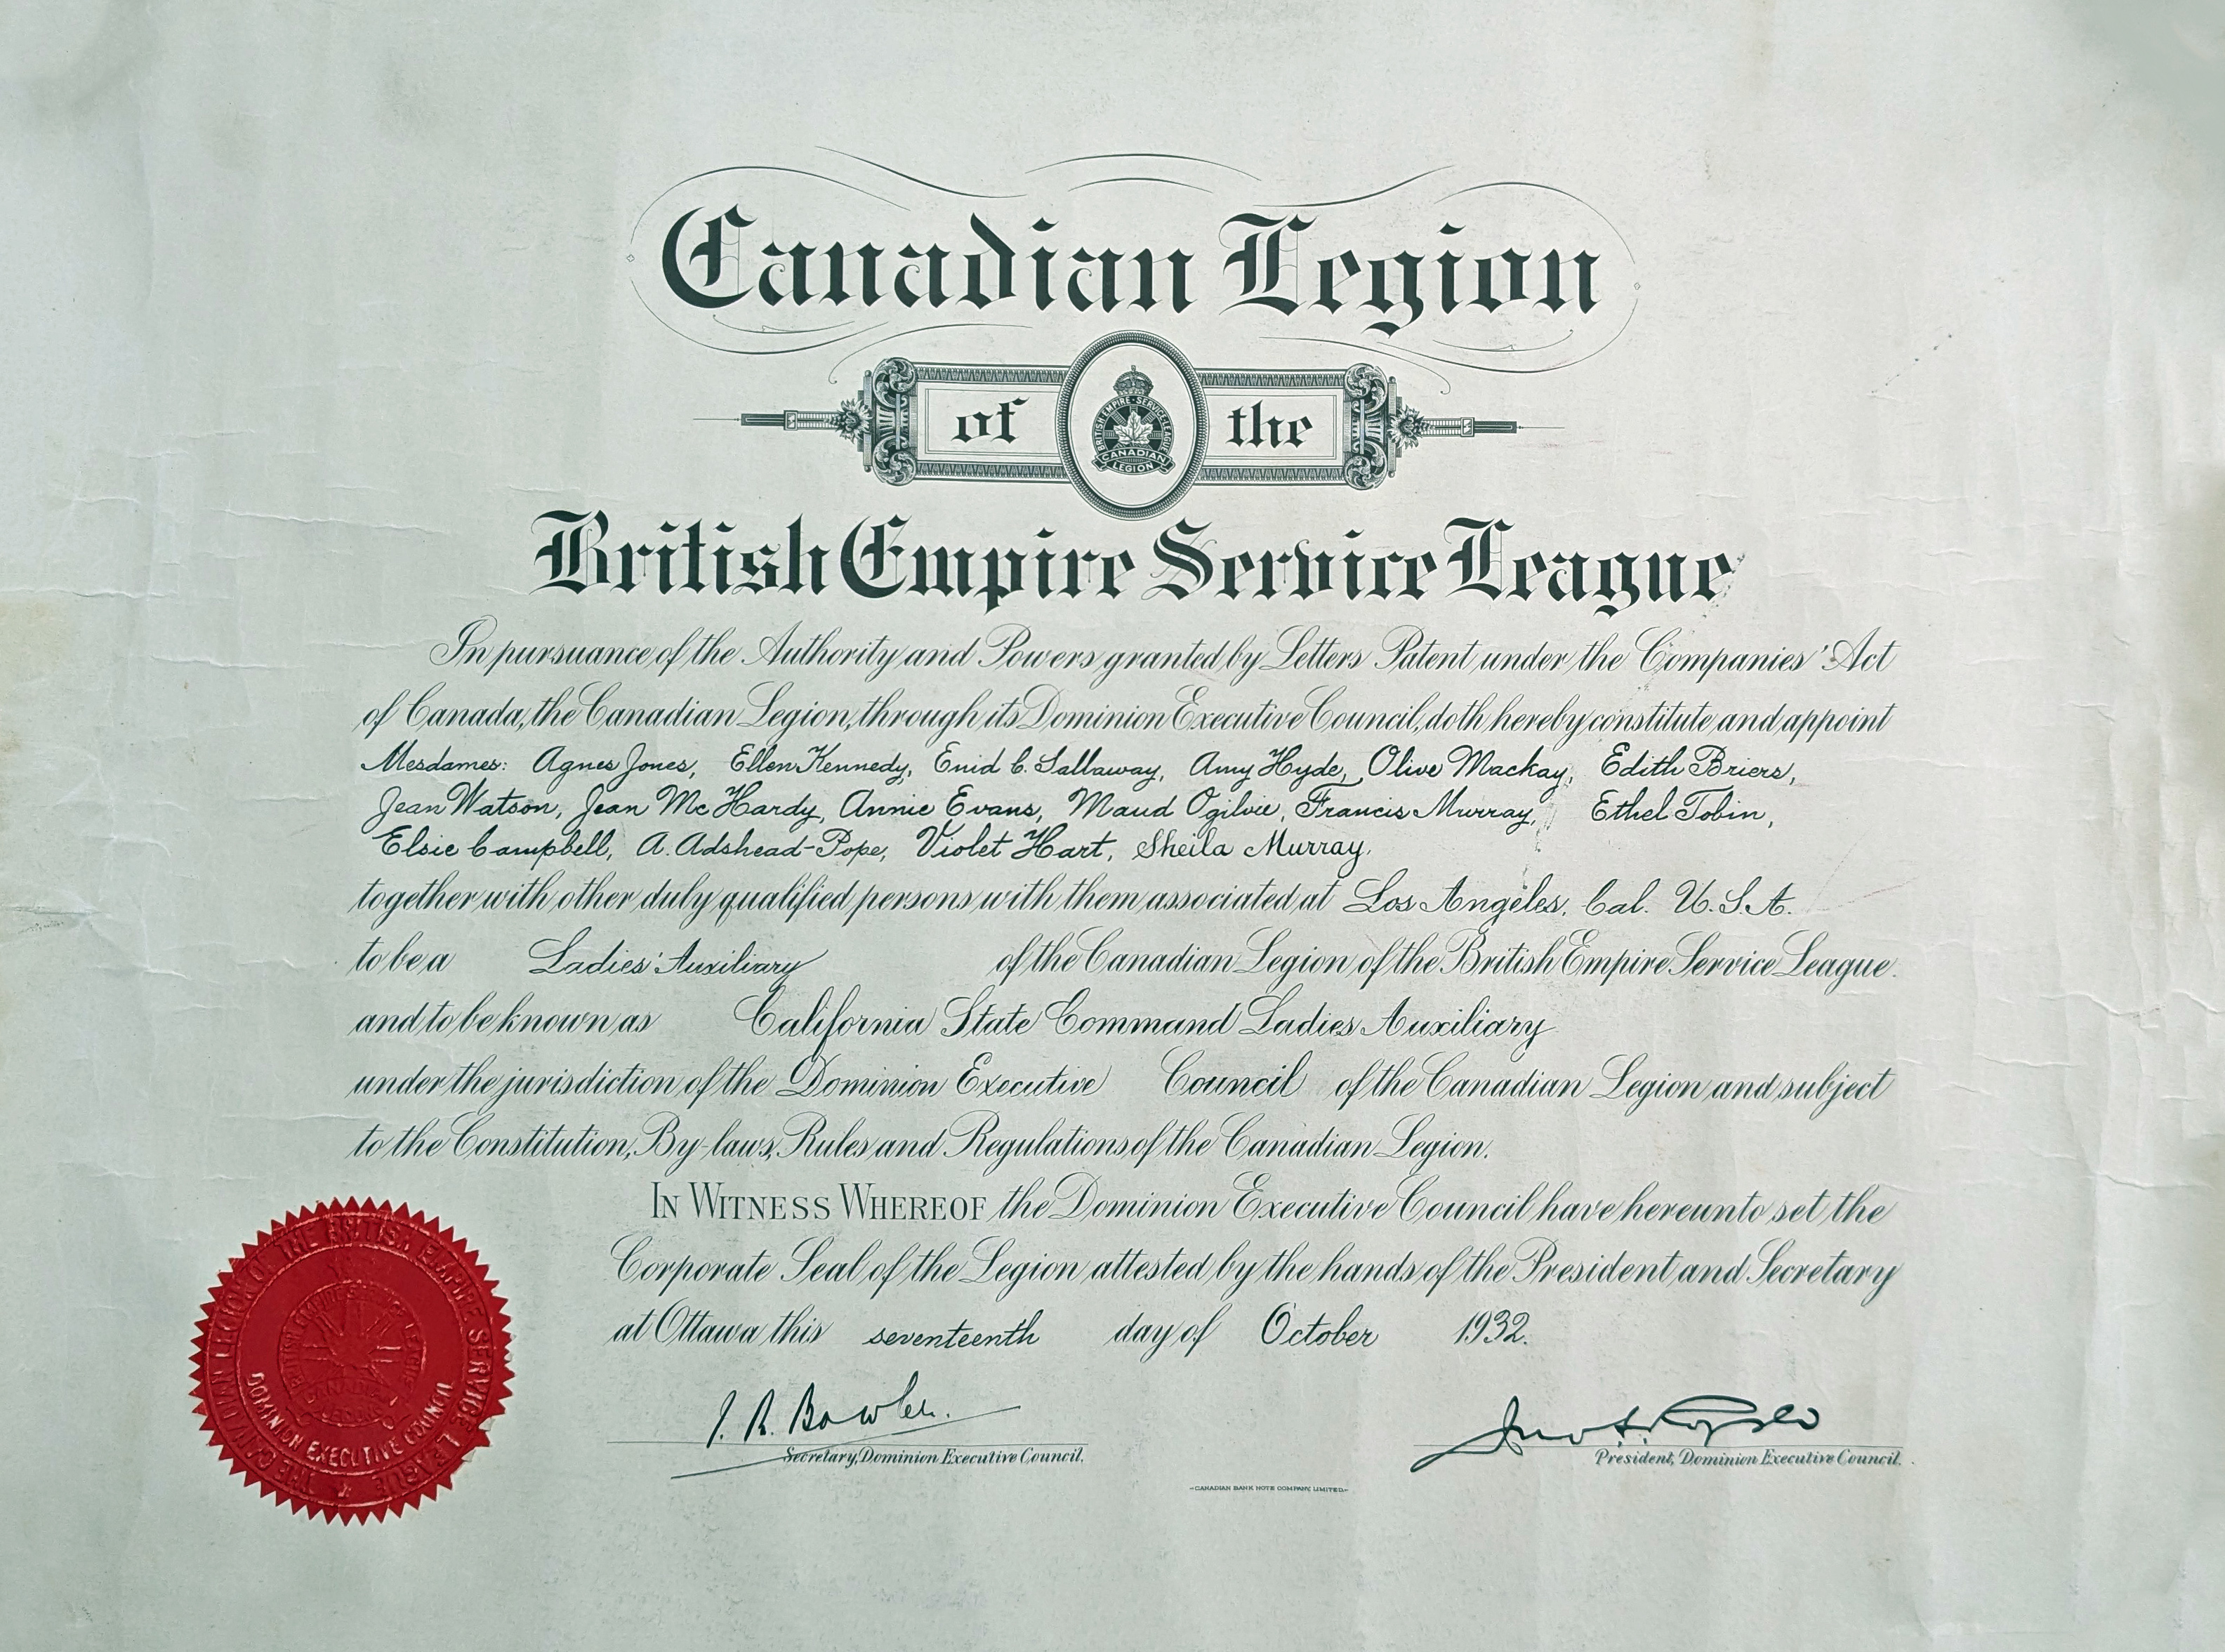 Canadian Legion
of the
BRITISH EMPIRE SERVICE LEAGUE
CANADIAN
LEGION
British Empire Service League
In pursuance of the Authority and Powers granted by Letters Patent under the Companies' Act
of Canada, the Canadian Legion, through its Dominion Executive Council, doth hereby constitute and appoint
Mesdames: Agnes Jones, Ellen Kennedy, Enid C. Sallaway, Amy Hyde, Olive Mackay, Edith Briers,
Jean Watson, Jean McHardy, Annie Evans, Maud Ogilvie, Francis Murray, Ethel Tobin,
Elsie Campbell, A. Adshead-Pope, Violet Hart, Sheila Murray,
together with other duly qualified persons with them associated at Los Angeles, Cal. U.S.A.
to be a Ladies' Auxiliary of the Canadian Legion of the British Empire Service League.
and to be known as California State Command Ladies Auxiliary
under the jurisdiction of the Dominion Executive Council of the Canadian Legion and subject
to the Constitution, By-laws, Rules and Regulations of the Canadian Legion.
IN WITNESS WHEREOF the Dominion Executive Council have hereunto set the
Corporate Seal of the Legion attested by the hands of the President and Secretary
at Ottawa this seventeenth day of October 1932.
THE CANADIAN LEGION OF THE BRITISH EMPIRE SERVICE LEAGUE
DOMINION EXECUTIVE COUNCIL
BRITISH EMPIRE SERVICE LEAGUE
CANADIAN
LEGION
J. R. Bowler.
Secretary, Dominion Executive Council.
President, Dominion Executive Council.
CANADIAN BANK NOTE COMPANY, LIMITED